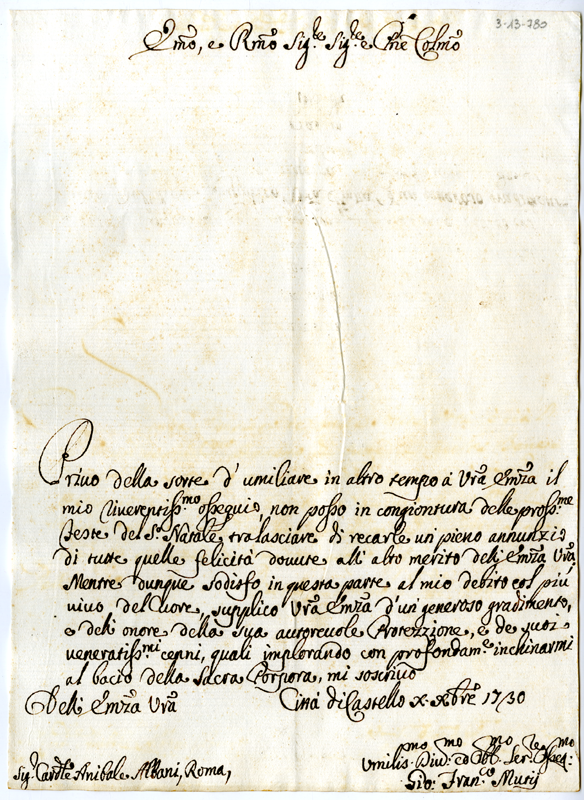 3-13-780
Emo, e Rmo Sig.re Sig.re e Pne Colmo
Privo della sorte d'umiliare in altro tempo á Vrã Emzã il
mio riverentiss.mo ossequio, non posso in congiontura delle pross.me
feste del S.o Natale, tralasciare di recarle un pieno annunzio
di tutte quelle felicitá dovute all'alto merito dell'Emzã Vrã.
Mentre dunque sodisfo in questa parte al mio debito col piú
vivo del Cuore, supplico Vrã Emzã d'un generoso gradimento,
e dell'onore della sua autorevole Protezzione, e de suoi
veneratiss.mi cenni, quali implorando con profondam.e inchinarmi
al bacio della Sacra Porpora, mi soscrivo
Dell'Emzã Vrã Cittá di Castello X. Xbre 1730
Umilis.mo Div.mo ed Obb.mo Ser.re Osseq.mo
Sig.r Cardle Anibale Albani, Roma, Gio: Fran.co Muti